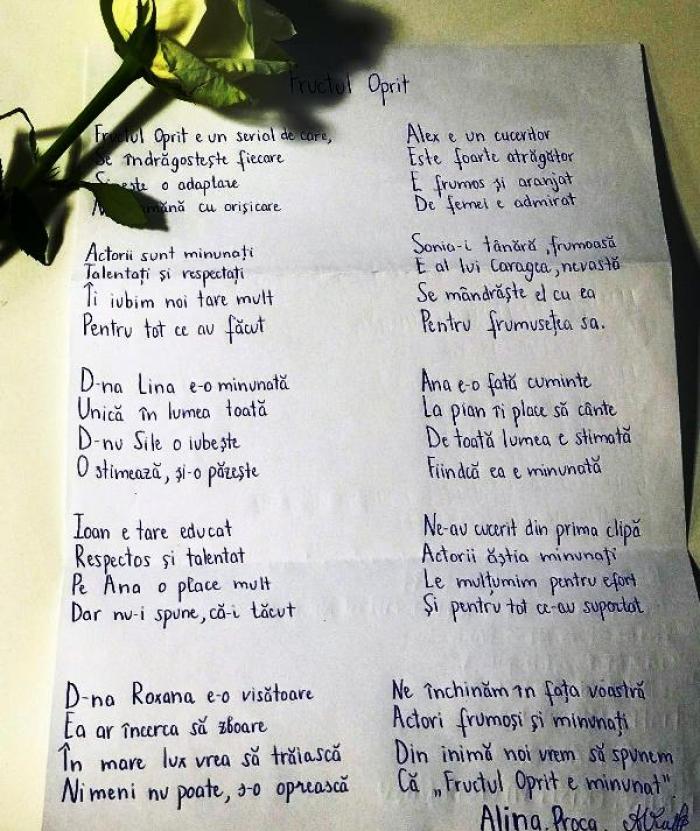 Fructul Oprit
Fructul Oprit e un serial de care,
Se îndrăgostește fiecare
este o adaptare
cu orișicare
Actorii sunt minunați
Talentați și respectați
Îi iubim noi tare mult
Pentru tot ce au făcut
D-na Lina e-o minunată
Unică în lumea toată
D-nu Sile o iubește
O stimează, și-o păzește
Ioan e tare educat
Respectos și talentat
Pe Ana o place mult
Dar nu-i spune, că-i tăcut
D-na Roxana e-o visătoare
Ea ar încerca să zboare
În mare lux vrea să trăiască
Nimeni nu poate, s-o oprească
Alex e un cuceritor
Este foarte atrăgător
E frumos și aranjat
De femei e admirat
Sonia-i tânără, frumoasă
E al lui Caragea, nevastă
Se mândrăște el cu ea
Pentru frumusețea sa.
Ana e-o fată cuminte
La pian îi place să cânte
De toată lumea e stimată
Fiindcă ea e minunată
Ne-au cucerit din prima clipă
Actorii ăștia minunați
Le mulțumim pentru efort
Și pentru tot ce-au suportat
Ne închinăm în fața voastră
Actori frumoși și minunați
Din inimă noi vrem să spunem
Că „Fructul Oprit e minunat"
Alina Proca